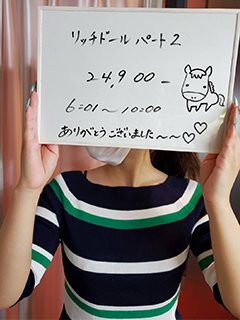 リッチドール パート2
24,900-
6:01～10:00
ありがとうございました～～♡♡